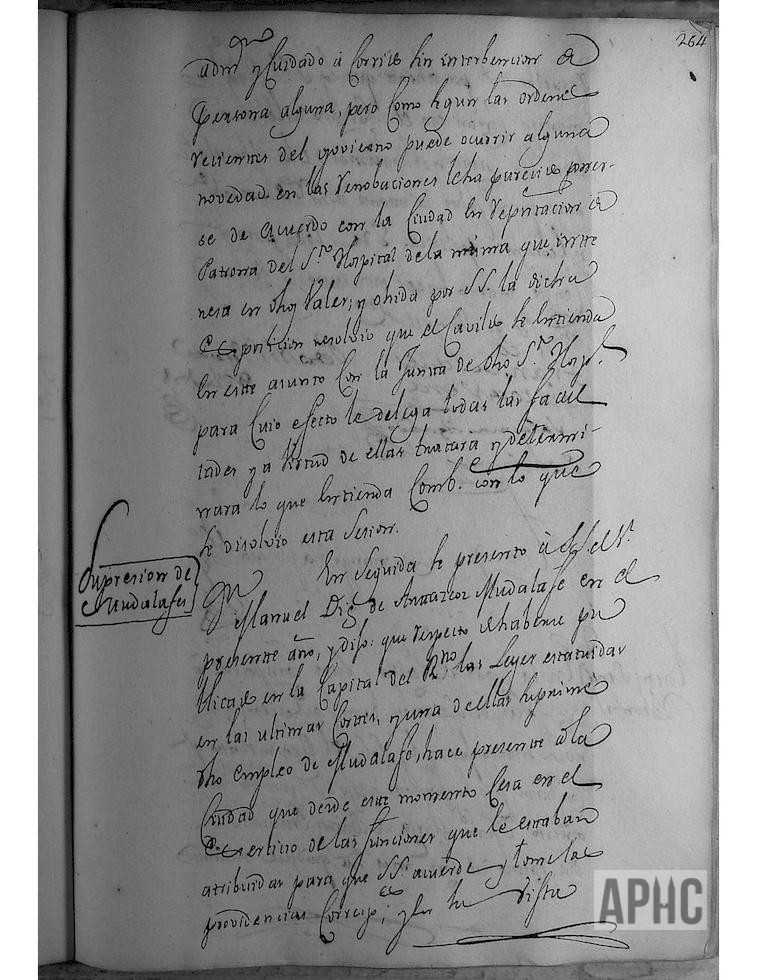 264
adm.on y Cuidado a Corrie sin interbencion de
Persona alguna, pero Como segun las ordene
recientes del govierno puede ocurrir alguna
novedad en las Venobaciones le ha parecido poner-
se de acuerdo con la Ciudad en Deputacion de
Patrona del S.to Hospital de la misma que inte
resa en dhos Vales; y ohida por SS. la dicha
Exposicion resolvio que el Cavildo se Entienda
En este asunto Con la Junta de dho S.to Hosp.l
para Cuio efecto le delega todas las facul
tades y a Virtud de ellas tratara y determi-
nara lo que Entienda Comb. con lo que
se disolvio esta Sesion.
Supresion de
Mudalafes
En Seguida se presento à SS. el S.r
D.n Manuel Dig de Mudalafe en el
presente año, y dijo: que respecto de haberse pu
blicado en la Capital del R.no las Leyes estatuidas
en las ultimas Cortes, y una de ellas suprime
dho empleo de Mudalafe, hace presente a la
Ciudad que desde este momento Cesa en el
Exercicio de las funciones que le estaban
atribuidas para que SS. acuerde y tome las
providencias Corresp.es y en su Vista
APHC